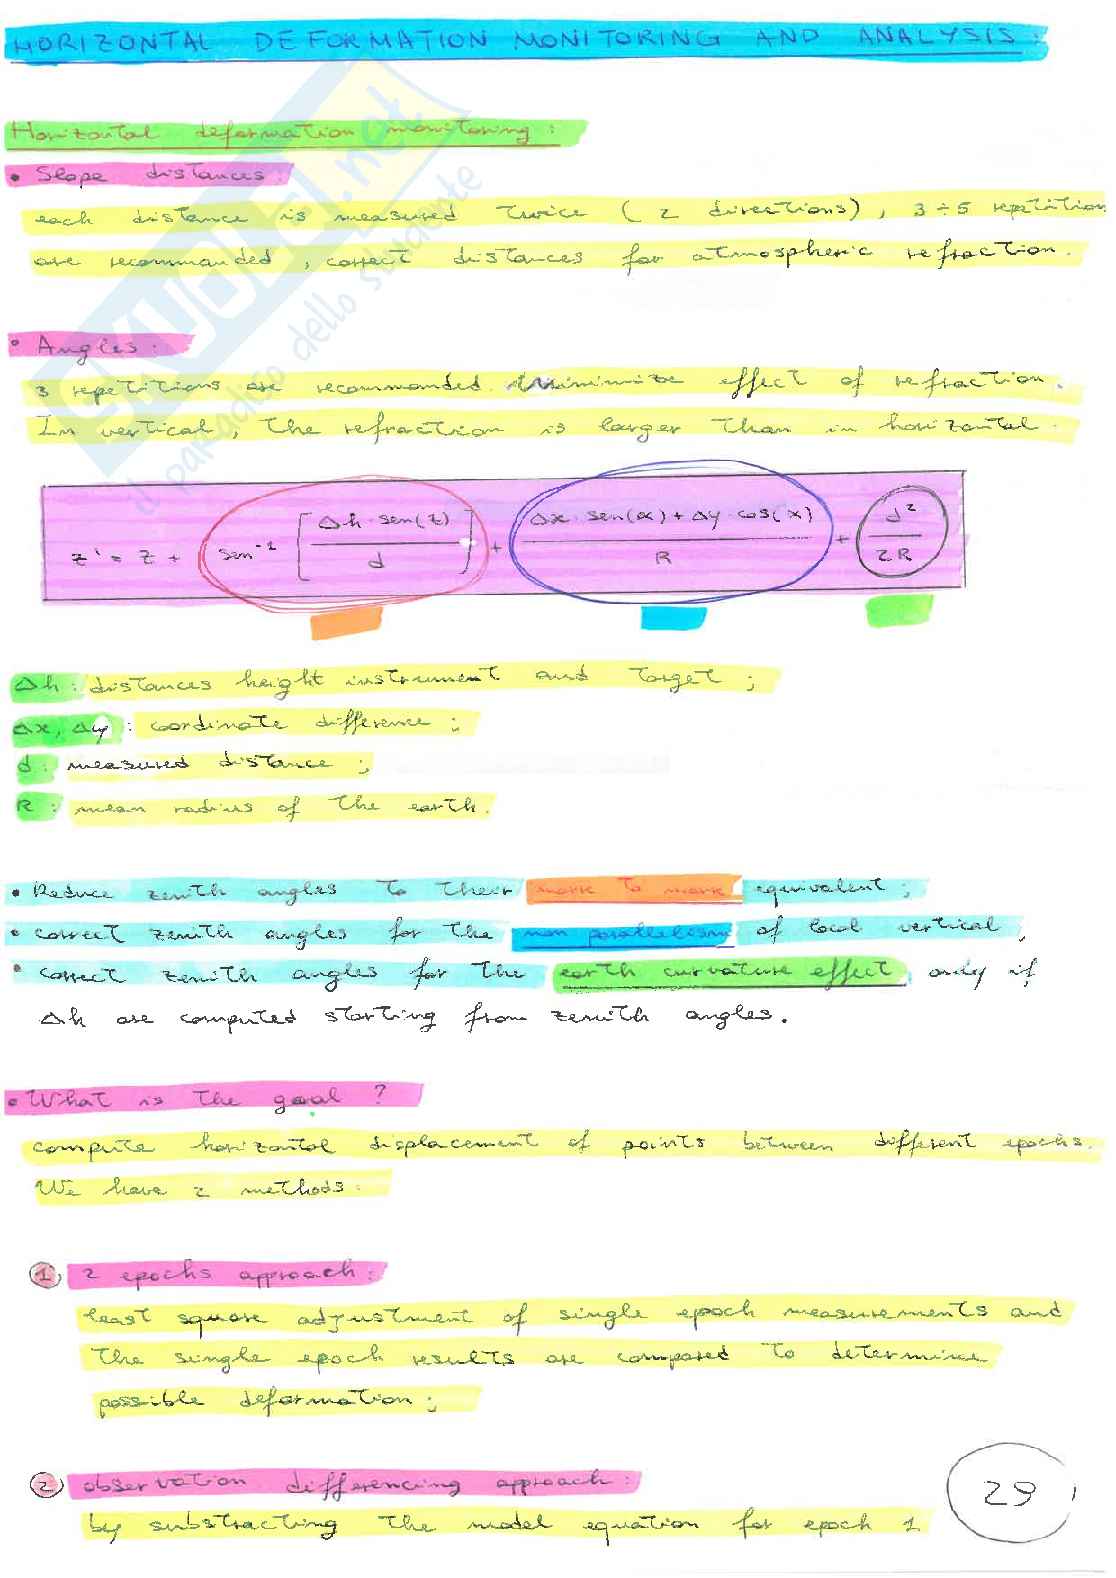 HORIZONTAL DEFORMATION MONITORING AND ANALYSIS:
Horizontal deformation monitoring:
• Slope distances:
each distance is measured twice (2 directions), 3÷5 repetition
are recommanded, correct distances for atmospheric refraction.
• Angles:
3 repetitions are recommanded. minimize effect of refraction.
In vertical, the refraction is larger than in horizontal.
z' = z + sen⁻¹ [Δh · sen(z) / d] + (Δx · sen(α) + Δy · cos(α)) / R + d² / 2R
Δh: distances height instrument and target;
Δx, Δy: coordinate difference;
d: measured distance;
R: mean radius of the earth.
• Reduce zenith angles to their mark to mark equivalent;
• correct zenith angles for the non parallelism of local vertical;
• correct zenith angles for the earth curvature effect, only if
Δh are computed starting from zenith angles.
• What is the goal?
compute horizontal displacement of points between different epochs.
We have 2 methods:
1) 2 epochs approach:
least square adjustment of single epoch measurements and
the single epoch results are compared to determine
possible deformation;
2) observation differencing approach:
by substracting the model equation for epoch 1
29
SKUOLA.net
il paradiso dello studente